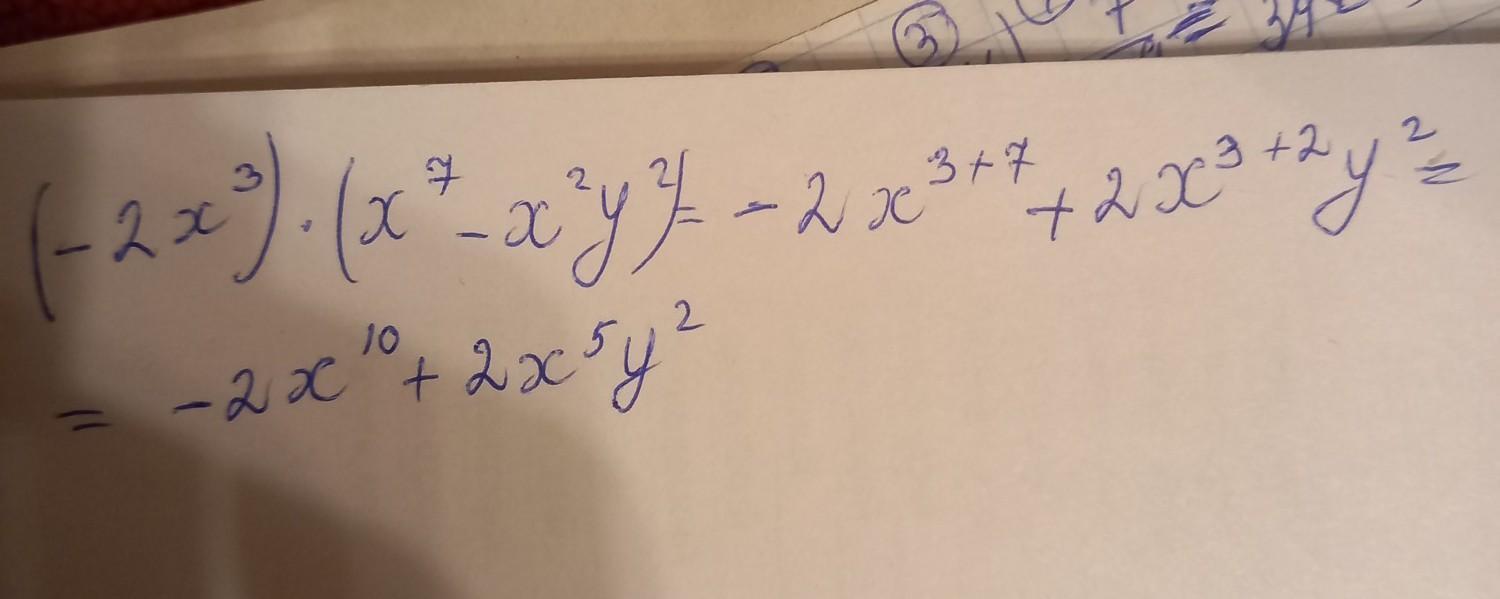 ③ 7 =
(-2x³)·(x⁷-x²y²)=-2x³⁺⁷+2x³⁺²y²=
= -2x¹⁰+2x⁵y²